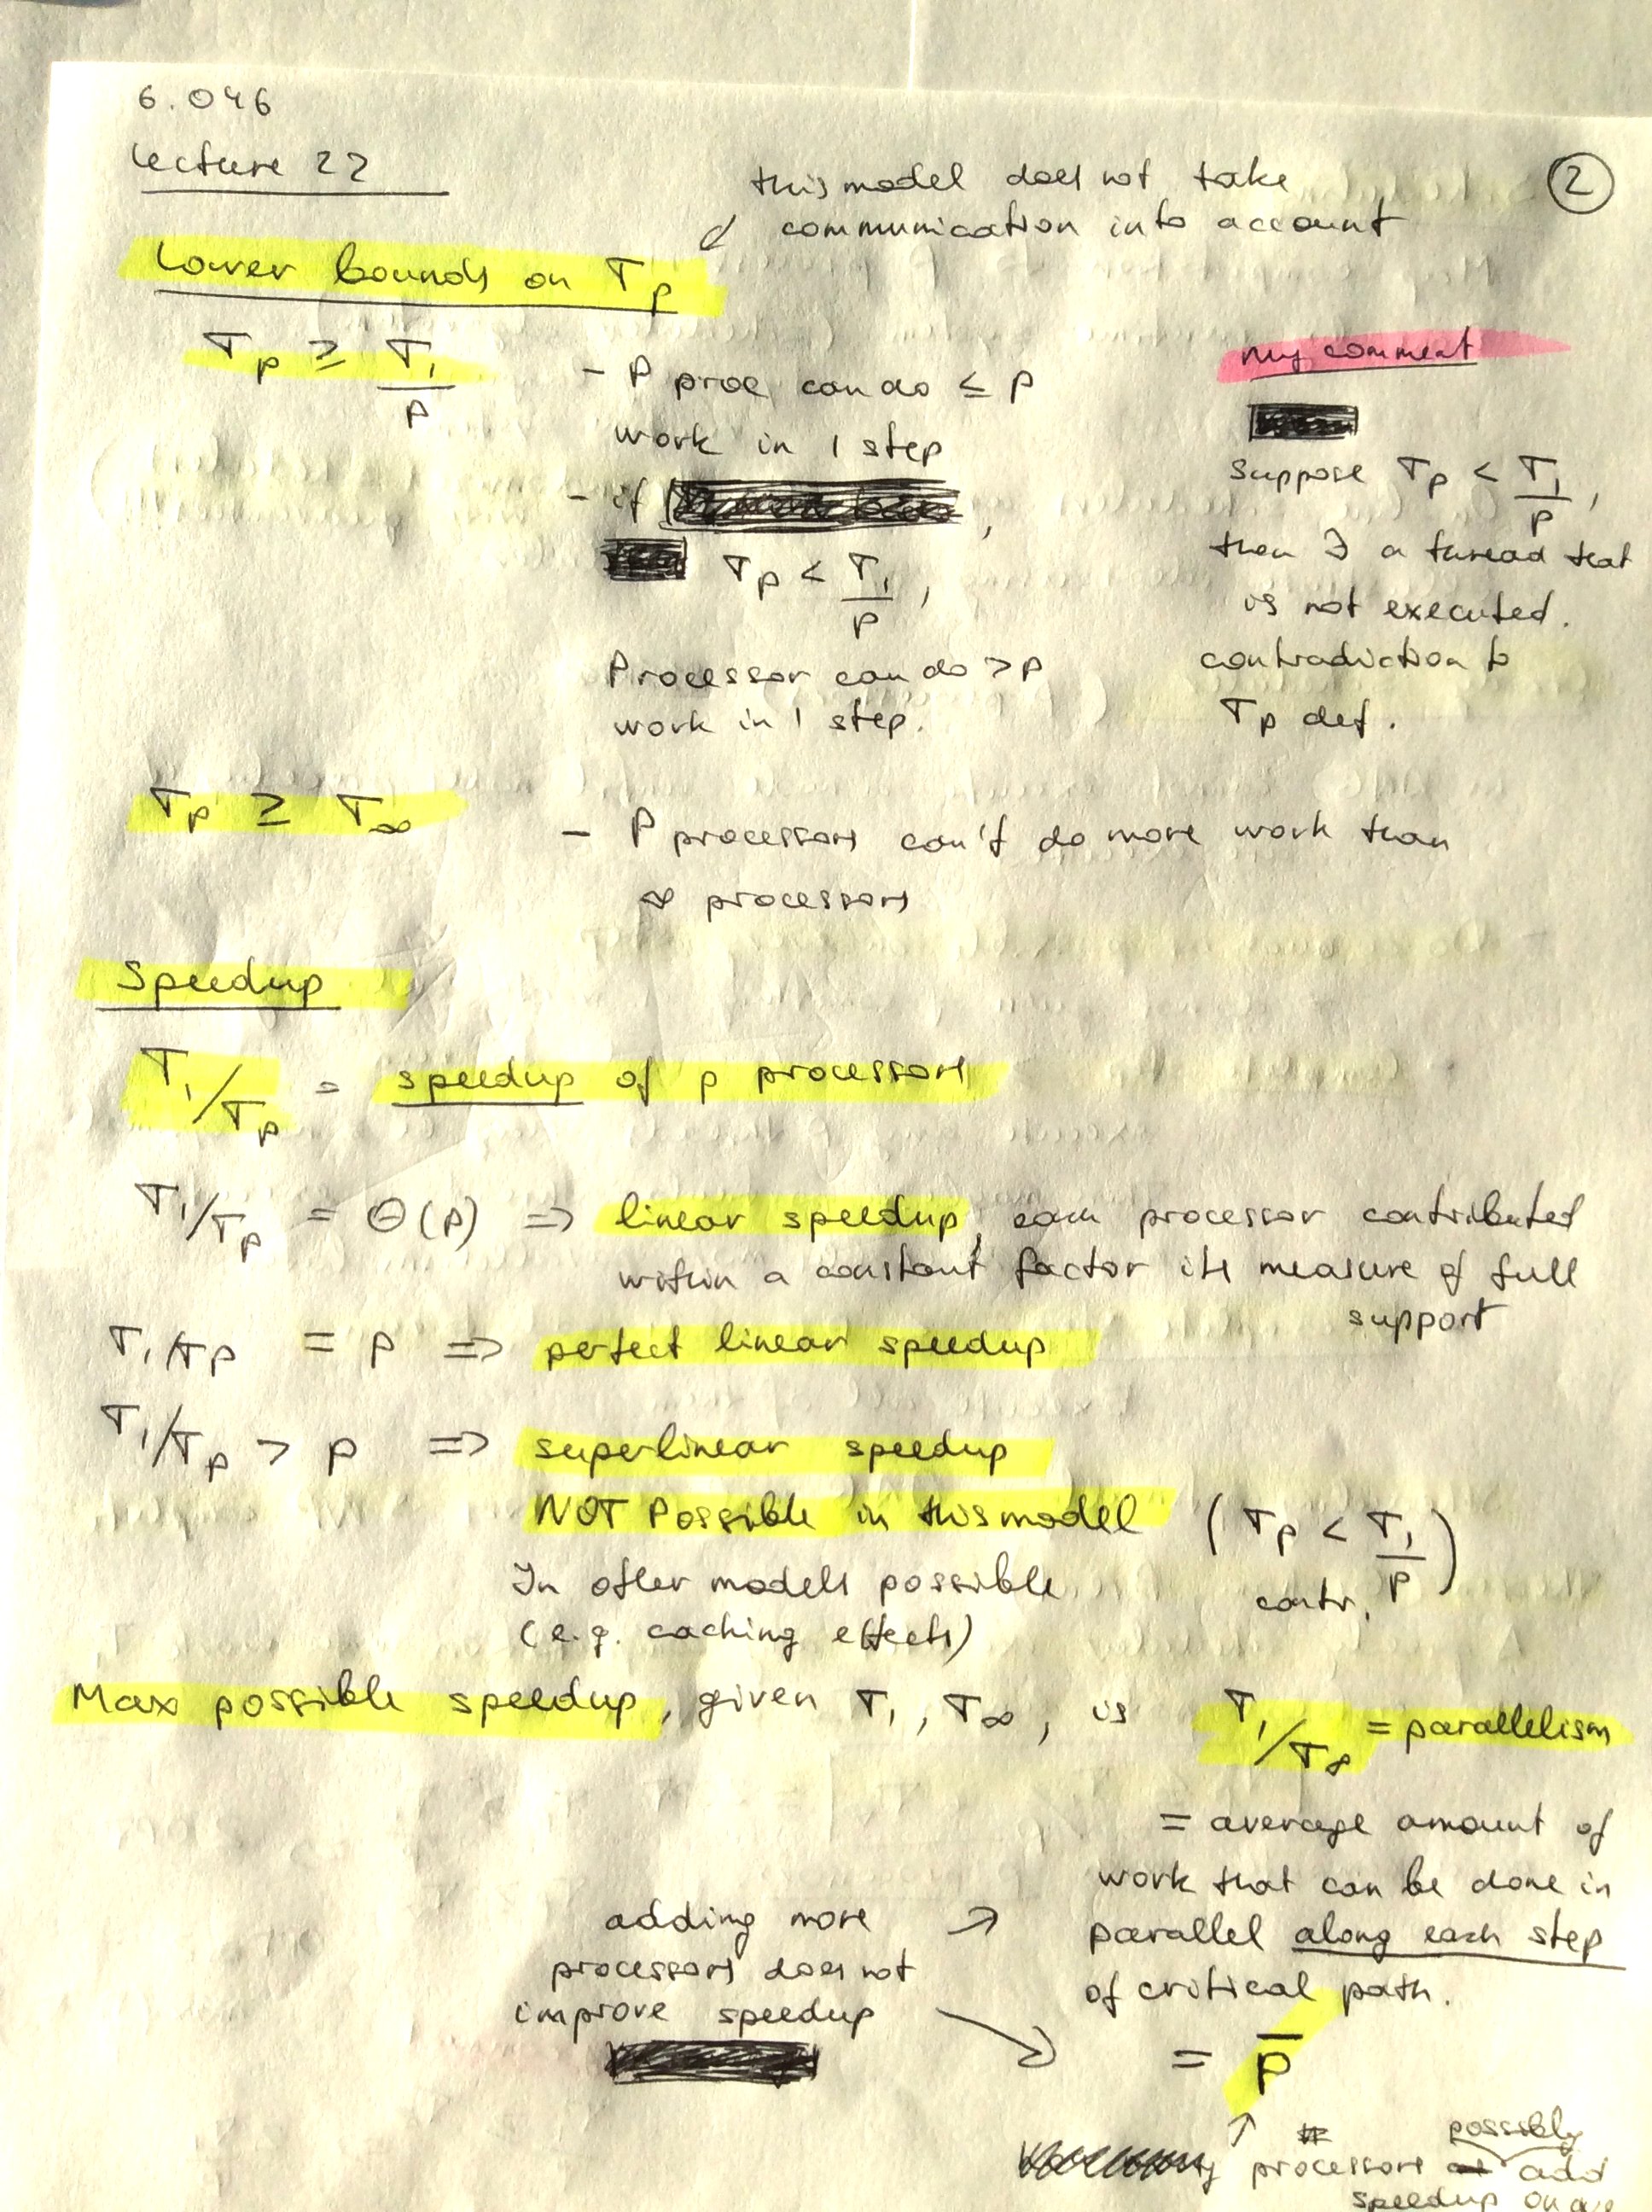 6.046
Lecture 22
②
this model does not take
↙ communication into account
Lower bounds on Tp
Tp ≥ T₁/P
- P proc can do ≤ p
work in 1 step
- if ,
Tp < T₁/P ,
Processor can do > p
work in 1 step.
my comment
Suppose Tp < T₁/P ,
then ∃ a thread that
is not executed.
contradiction to
Tp def.
Tp ≥ T∞
- P processors can't do more work than
∞ processors
Speedup
T₁/Tp = speedup of p processors
T₁/Tp = Θ(p) => linear speedup, each processor contributed
within a constant factor its measure of full
support
T₁/Tp = p => perfect linear speedup
T₁/Tp > p => superlinear speedup
NOT Possible in this model (Tp < T₁/P)
contr.
In other models possible
(e.g. caching effects)
Max possible speedup, given T₁, T∞, is T₁/T∞ = parallelism
= average amount of
work that can be done in
parallel along each step
of critical path.
adding more ↗
processors does not
improve speedup ↘
= p̄
↑ # possibly
processors add
speedup on